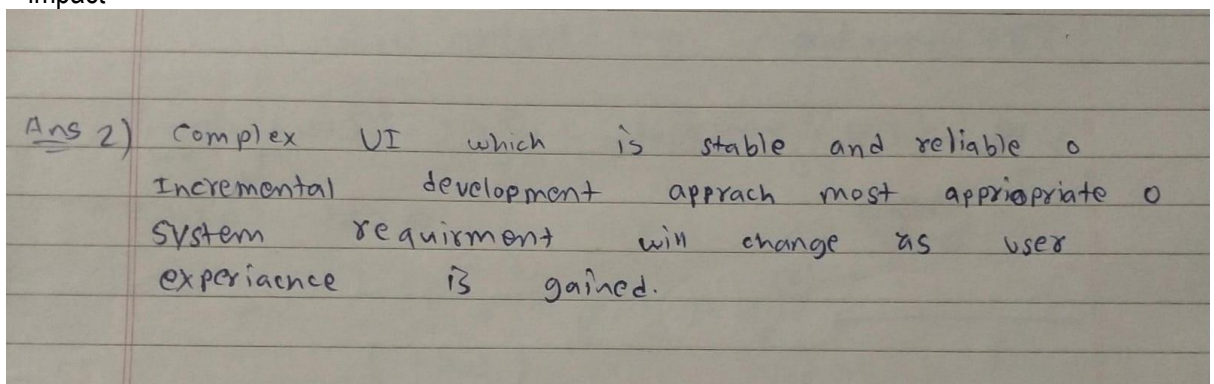 impact
Ans 2) Complex UI which is stable and reliable o
Incremental development apprach most appriopriate o
System requirment will change as user
experiacnce is gained.